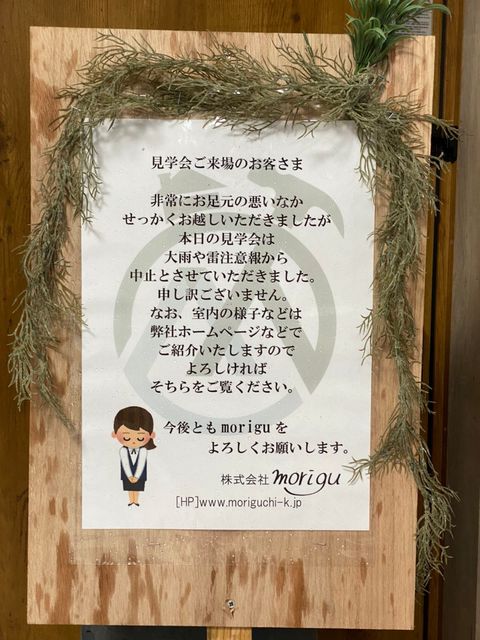 見学会ご来場のお客さま
非常にお足元の悪いなか
せっかくお越しいただきましたが
本日の見学会は
大雨や雷注意報から
中止とさせていただきました。
申し訳ございません。
なお、室内の様子などは
弊社ホームページなどで
ご紹介いたしますので
よろしければ
そちらをご覧ください。
今後とも moriguを
よろしくお願いします。
株式会社 morigu
[HP]www.moriguchi-k.jp